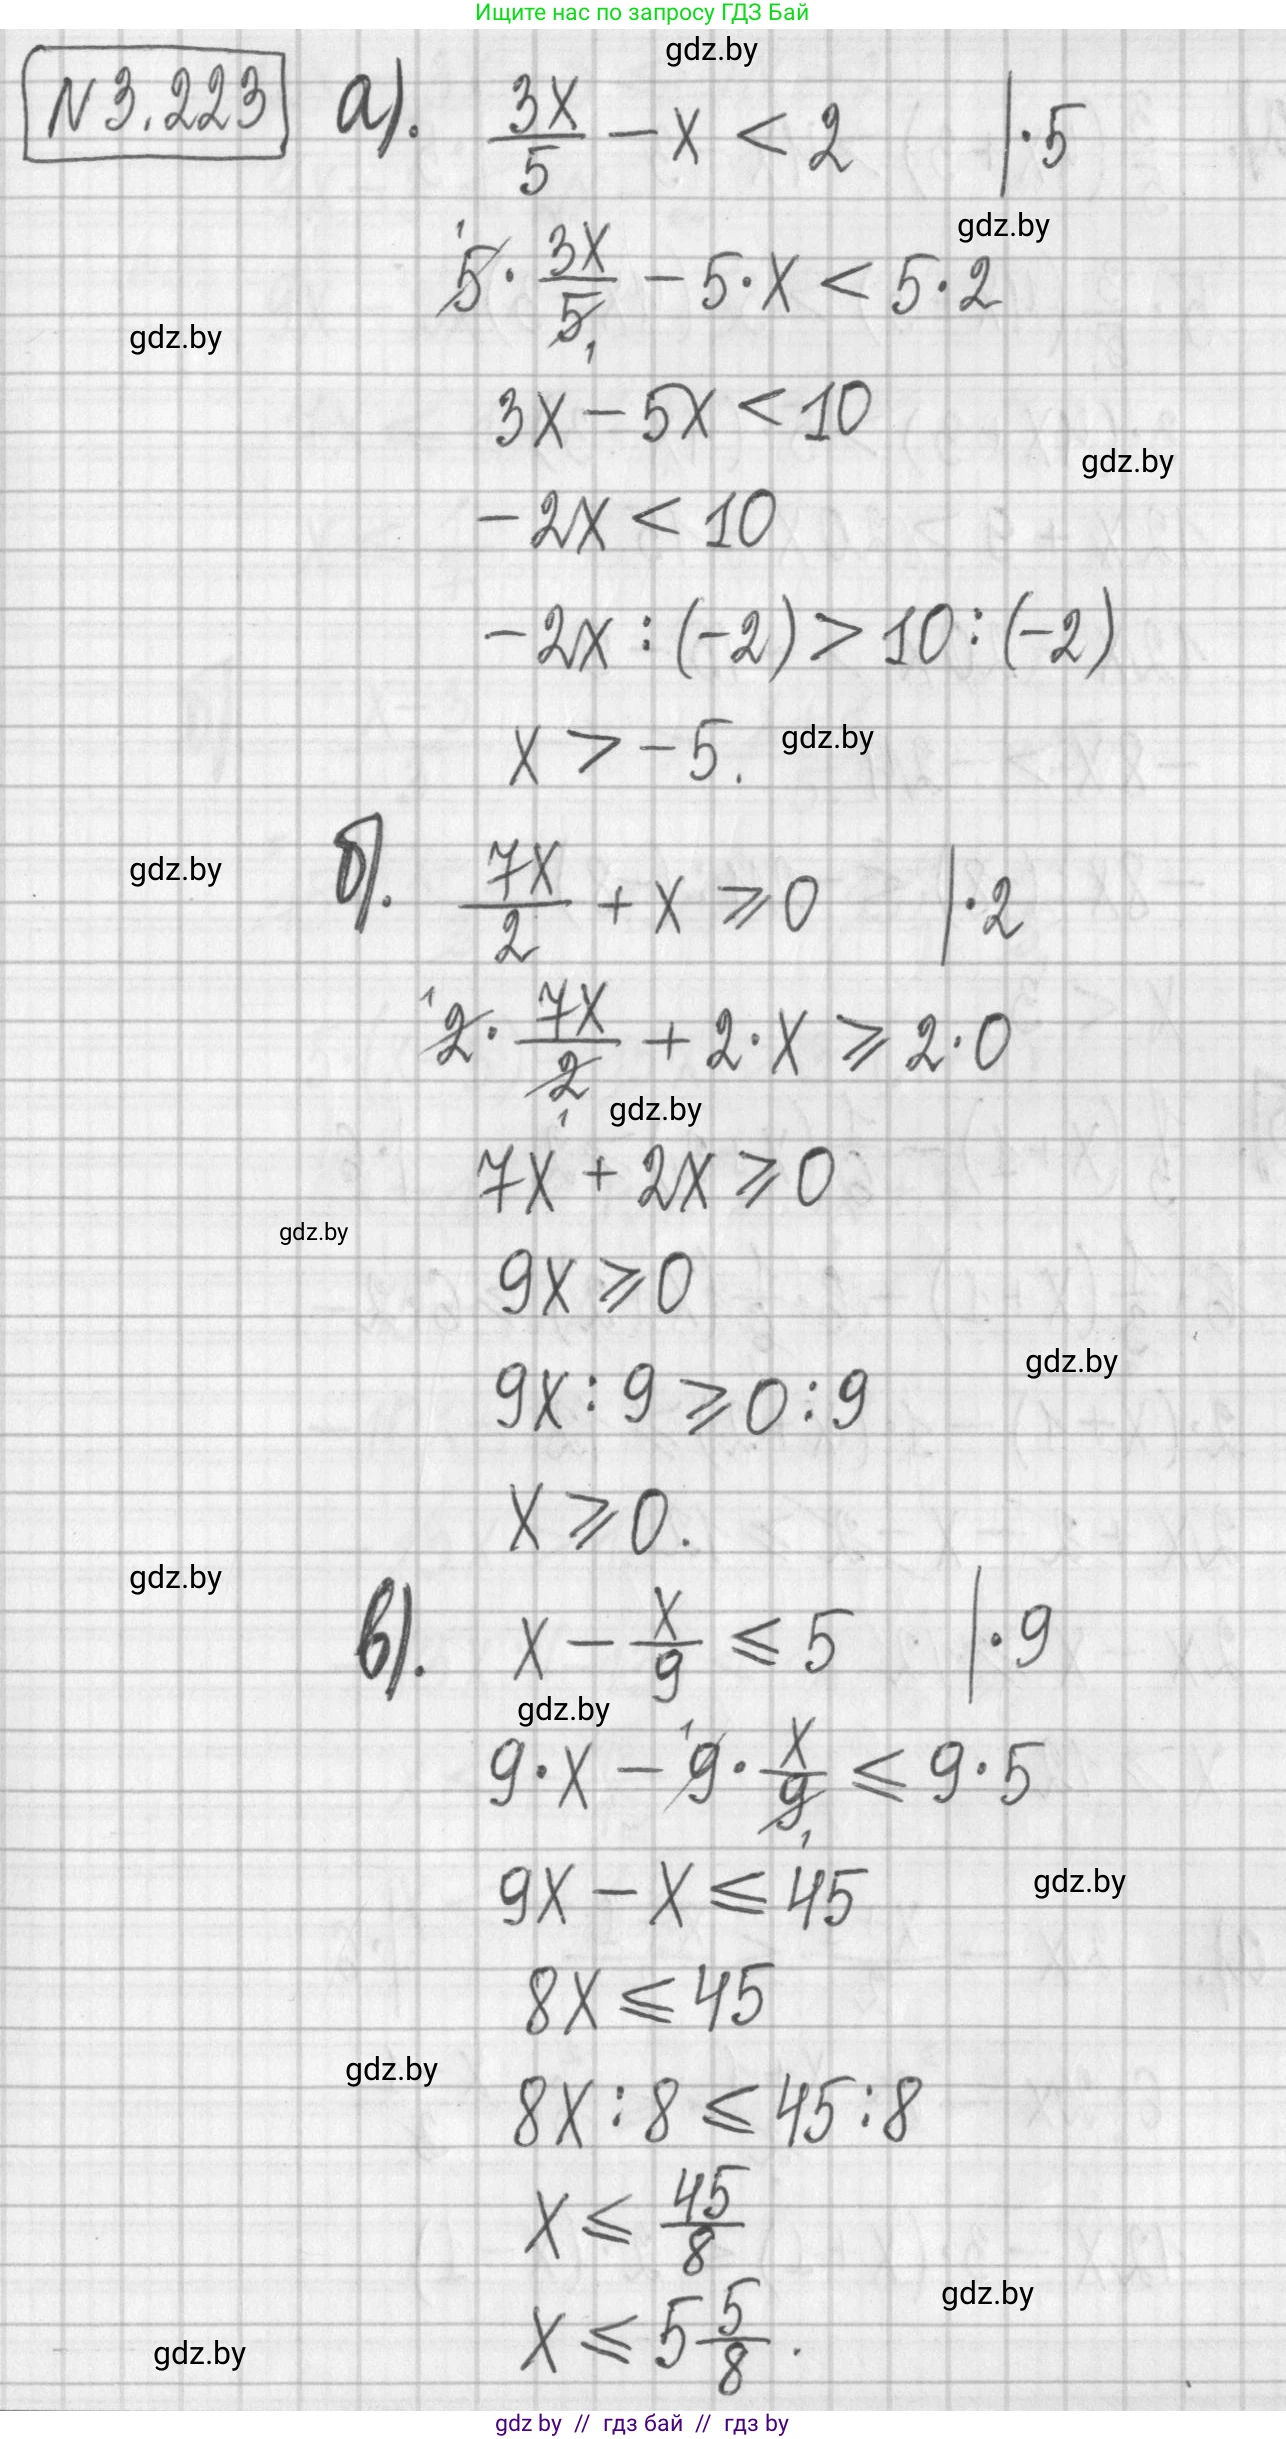 Ищите нас по запросу ГДЗ Бай
gdz.by
N 3.223 а). 3x/5 - x < 2 |·5
gdz.by
5 · 3x/5 - 5·x < 5·2
gdz.by
3x - 5x < 10
gdz.by
-2x < 10
-2x : (-2) > 10 : (-2)
x > -5.
gdz.by
gdz.by
б). 7x/2 + x ⩾ 0 |·2
2 · 7x/2 + 2·x ⩾ 2·0
gdz.by
7x + 2x ⩾ 0
gdz.by
9x ⩾ 0
gdz.by
9x : 9 ⩾ 0 : 9
x ⩾ 0.
gdz.by
в). x - x/9 ⩽ 5 |·9
gdz.by
9·x - 9 · x/9 ⩽ 9·5
gdz.by
9x - x ⩽ 45
8x ⩽ 45
gdz.by
8x : 8 ⩽ 45 : 8
x ⩽ 45/8
gdz.by
x ⩽ 5 5/8.
gdz.by
gdz by // гдз бай // гдз by